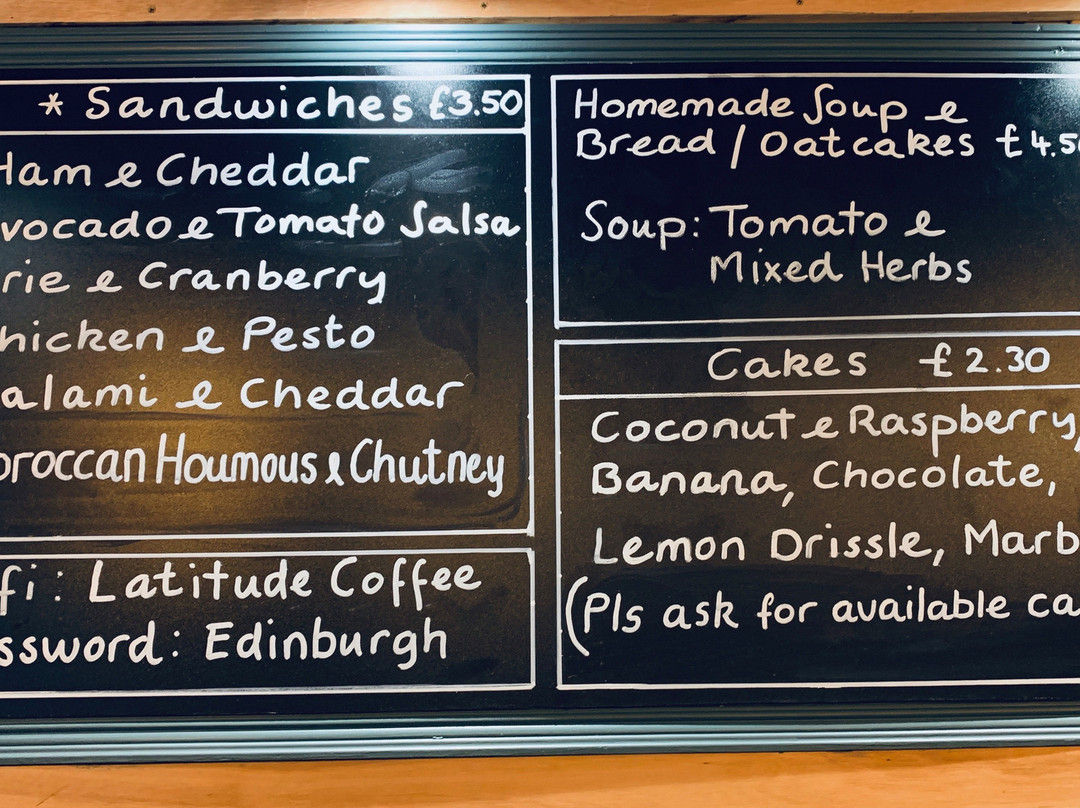 * Sandwiches £3.50
Ham & Cheddar
vocado & Tomato Salsa
rie & Cranberry
hicken & Pesto
alami & Cheddar
oroccan Houmous & Chutney
fi: Latitude Coffee
ssword: Edinburgh
Homemade Soup &
Bread / Oatcakes £4.50
Soup: Tomato &
Mixed Herbs
Cakes £2.30
Coconut & Raspberry,
Banana, Chocolate,
Lemon Drissle, Marb
(Pls ask for available ca